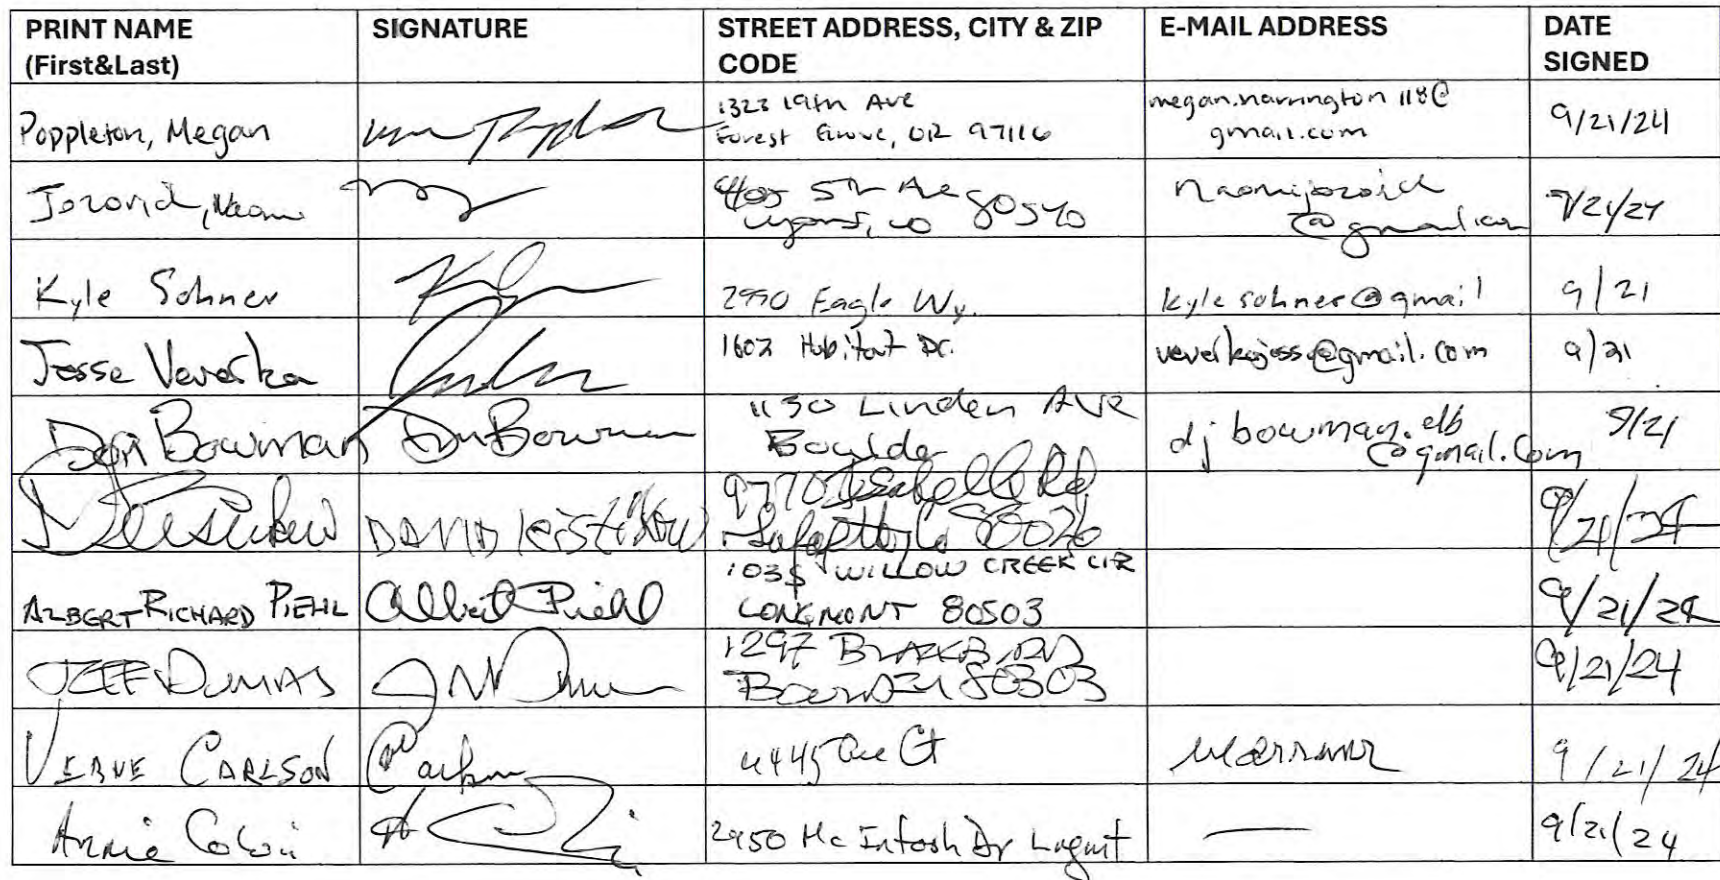 PRINT NAME
(First&Last)
SIGNATURE
STREET ADDRESS, CITY & ZIP
CODE
E-MAIL ADDRESS
DATE
SIGNED
Poppleton, Megan
1323 19th Ave
Forest Grove, OR 97116
megan.harrington 118@
gmail.com
9/21/24
5th Ave 80540
Lyons, CO
@gmail.com
9/21/24
Kyle Sohner
2990 Eagle Wy.
kylesohner@gmail
9/21
Jesse Veverka
1602 Habitat Dr.
@gmail.com
9/21
Don Bowman
Don Bowman
1130 Linden AVE
Boulder
dj bowman.elb
@gmail.com
9/21
DAVID
9770 Isabelle Rd
Lafayette Co 80026
9/21/24
ALBERT RICHARD PIEHL
Albert Piehl
WILLOW CREEK CIR
LONGMONT 80503
9/21/24
JEFF DUMAS
1297 BLACKBIRD
BOULDER 80303
9/21/24
VERVE CARLSON
4445 Ct
9/21/24
Annie
2950 McIntosh Dr Lngmt
—
9/21/24